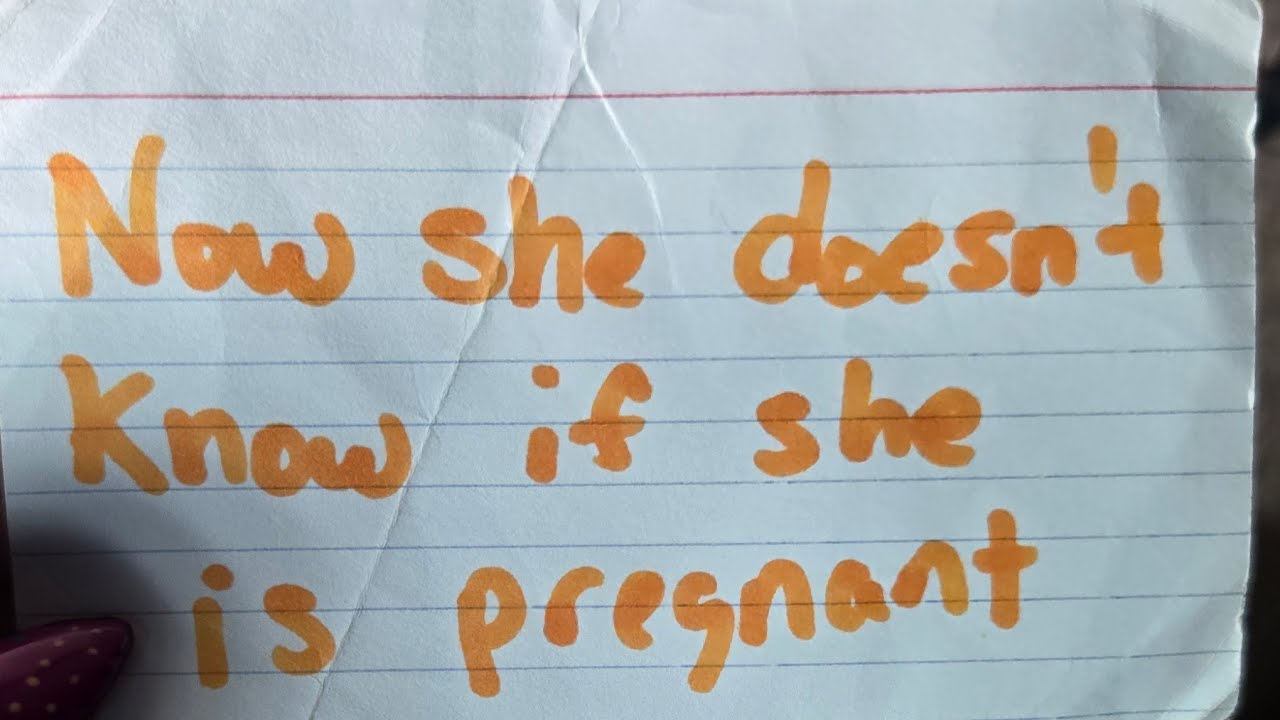 Now she doesn't
know if she
is pregnant